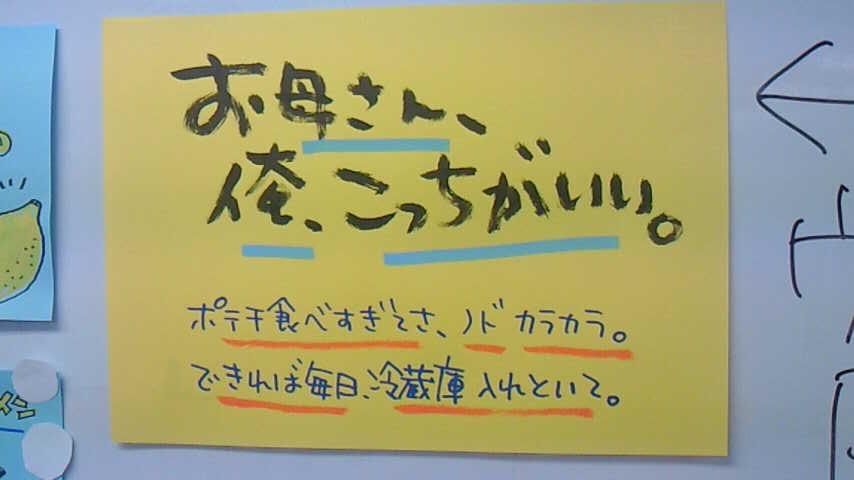 お母さん、
俺、こっちがいい。
ポテチ食べすぎてさ、ノドカラカラ。
できれば毎日、冷蔵庫入れといて。